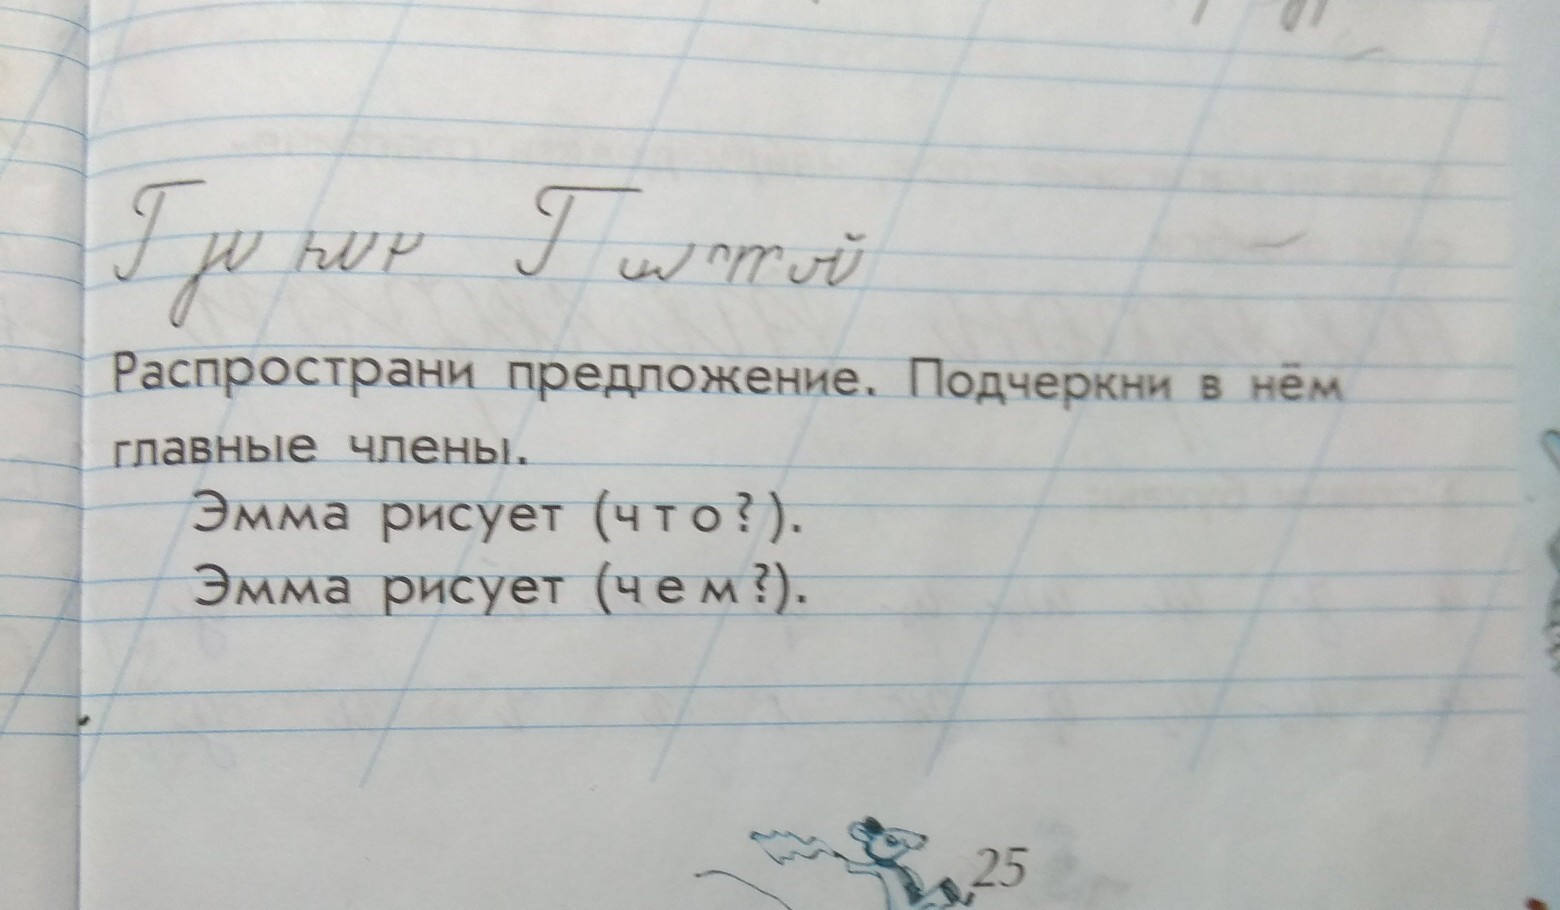 Распространи предложение. Подчеркни в нём
главные члены.
Эмма рисует (что?).
Эмма рисует (чем?).
25